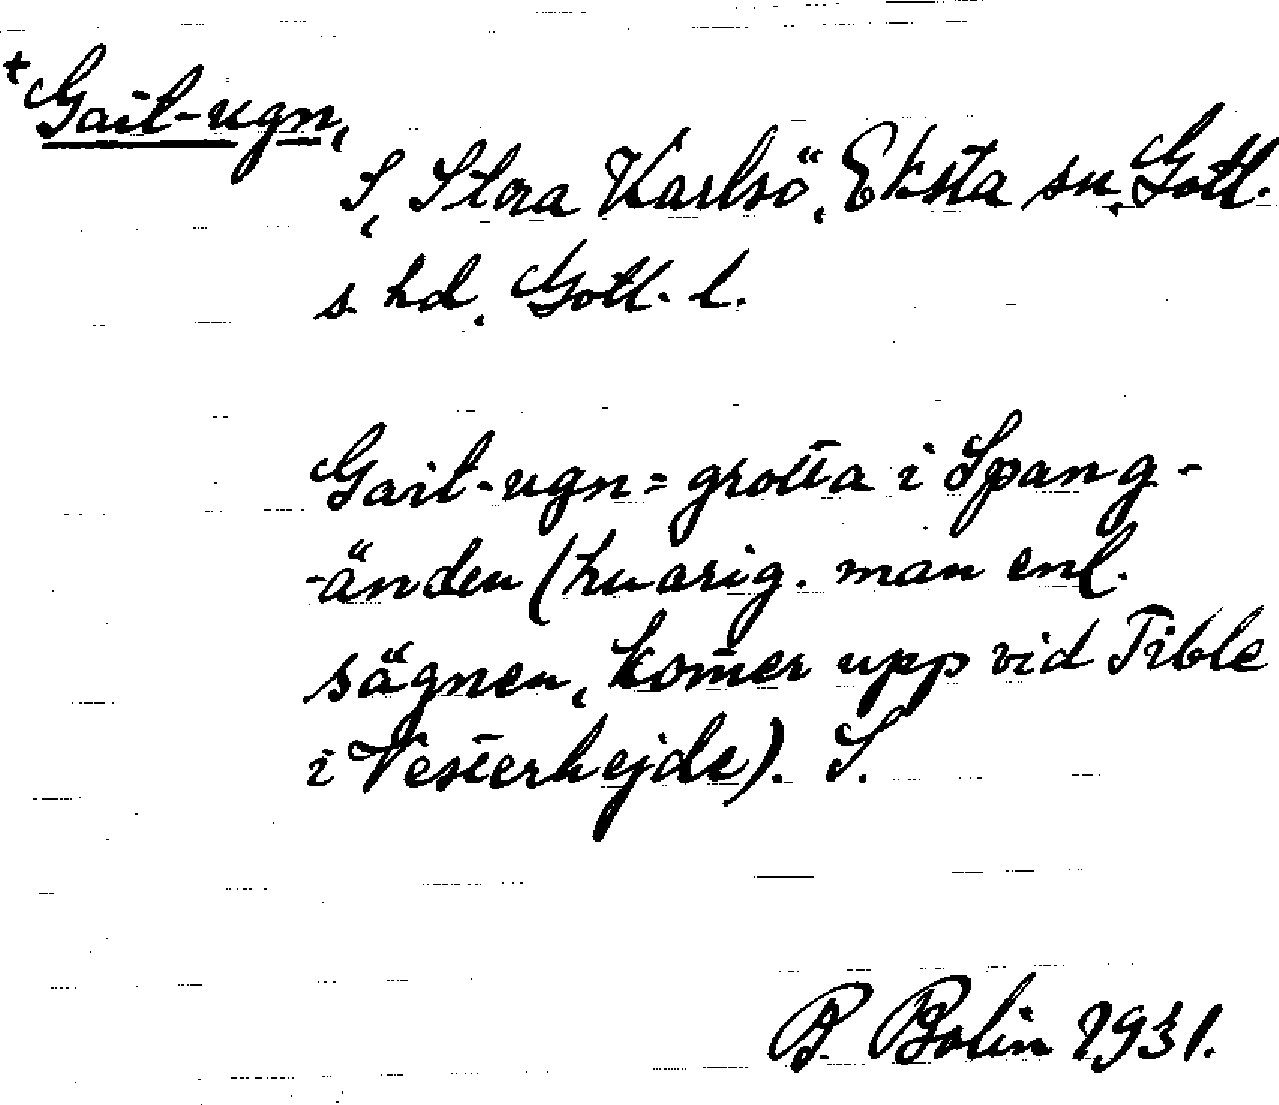 +Gail-ugn,
S, Stora Karlsö, Eksta sn, Gotl.
s. hd. Gotl. l.
Gail-ugn = grotta i Spang-
-änden (hvarig. man enl.
sägnen, kom̄er upp vid Tible
i Vesterhejde). S.
P. Bolin 1931.